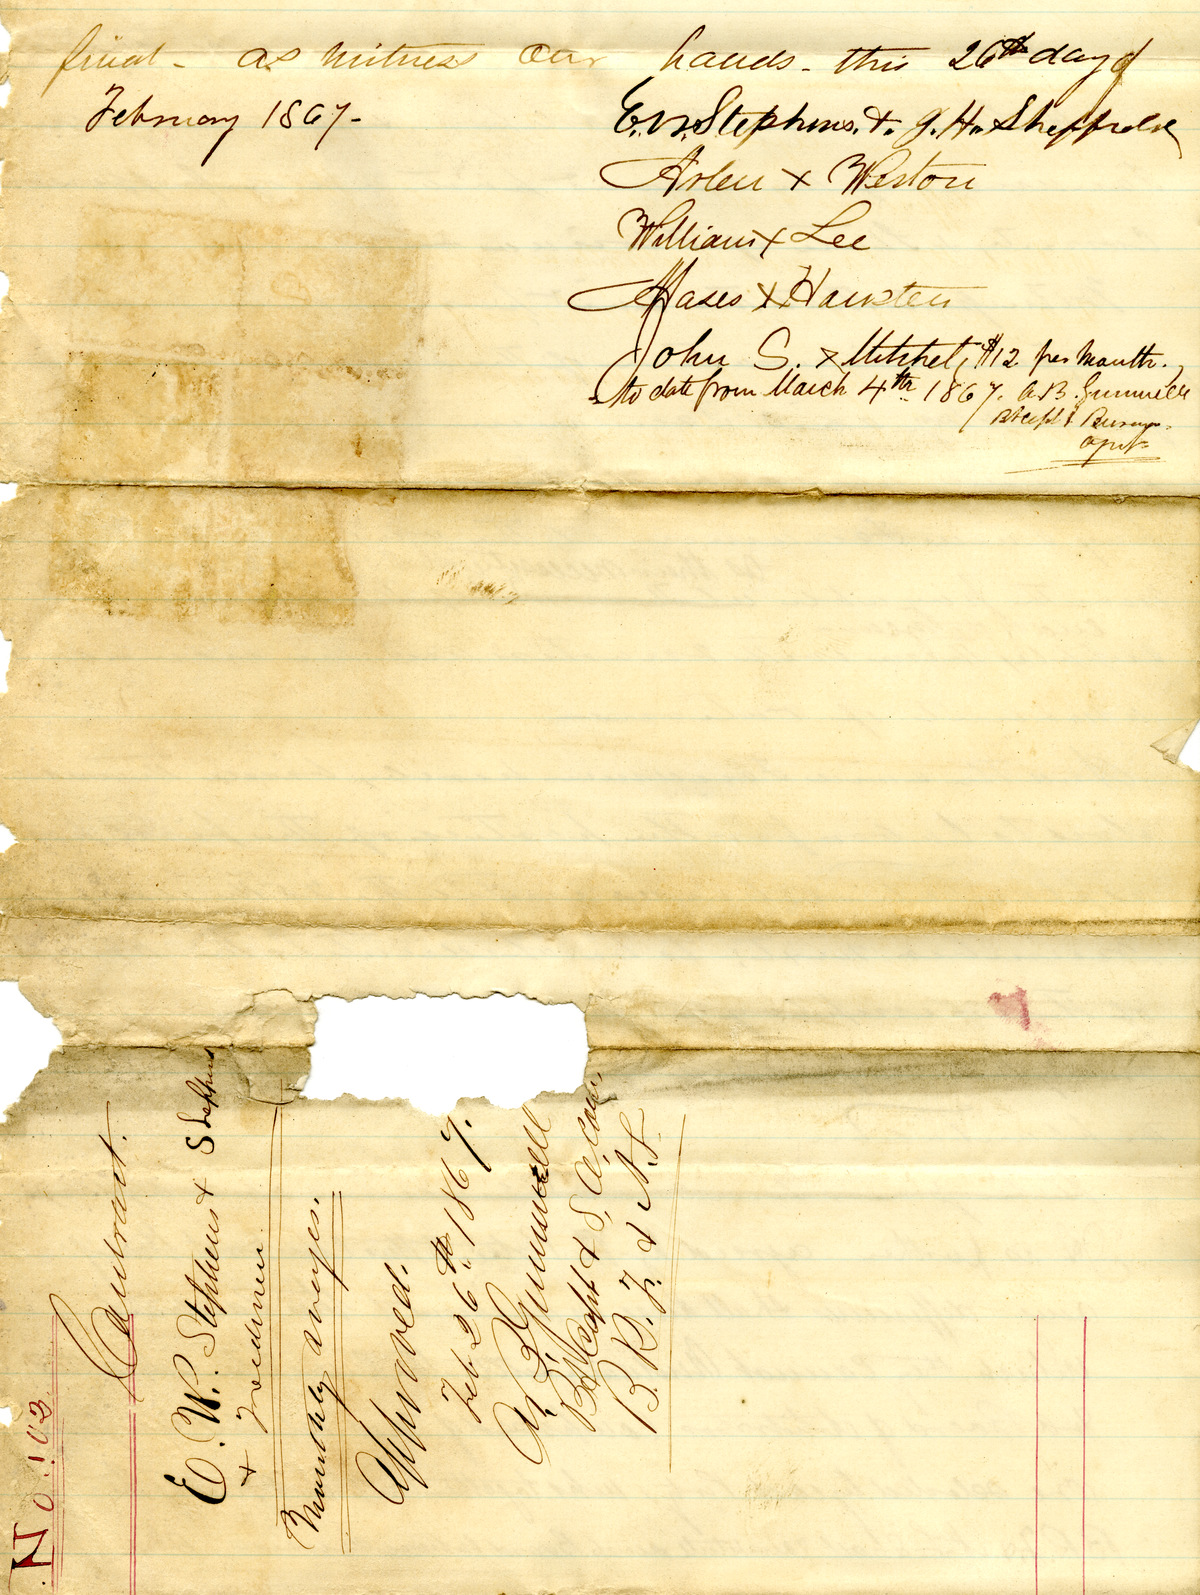 final - as witness our hands - this 26th day of
February 1867-
E. W. Stephens. + J. H.
Arlen x Weston
William x Lee
Moses x
John S. x Mitchel, $12 per Month.
to date from March 4th 1867. A. B.
Bt Capt &
No. 103.
Contract.
E. W. Stephens +
+ Freedmen
Monthly wages.
Approved.
Feb 26th 1867.
A. B.
Bt Capt & S. A. Com
B. R. F. & A. L.